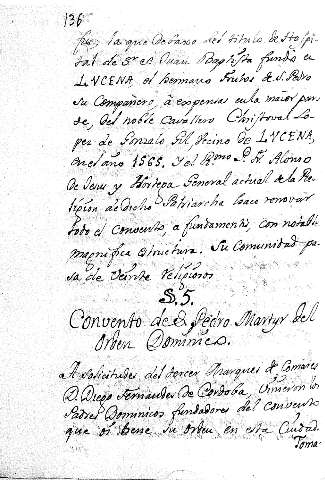 136
fue, la que debaxo del titulo de Hospi
tal de Sn. Juan Baptista fundó en
LVCENA, el hermano Frutos de S. Pedro
Su Compañero, à expensas en la maior par
te, del noble Cavallero Christoval Lo
pez de Gonzalo Gil, Vecino de LVCENA,
en el año 1565. y el Rmo. P. Fr. Alonso
de Jesus y Hortega General actual de la Re
ligion de dicho Patriarcha hace renovar
todo el Convento, à fundamentis, con notable
magnifica estructura. Su Comunidad pa
sa de Veinte religiosos
§. 5.
Convento de S. Pedro Martyr del
Orden Dominico.
A solicitudes del tercer Marques de Comares
D. Diego Fernandes de Cordoba, vinieron los
Padres Dominicos fundadores del convento
que oi tiene su Orden en esta Ciudad
Toma-